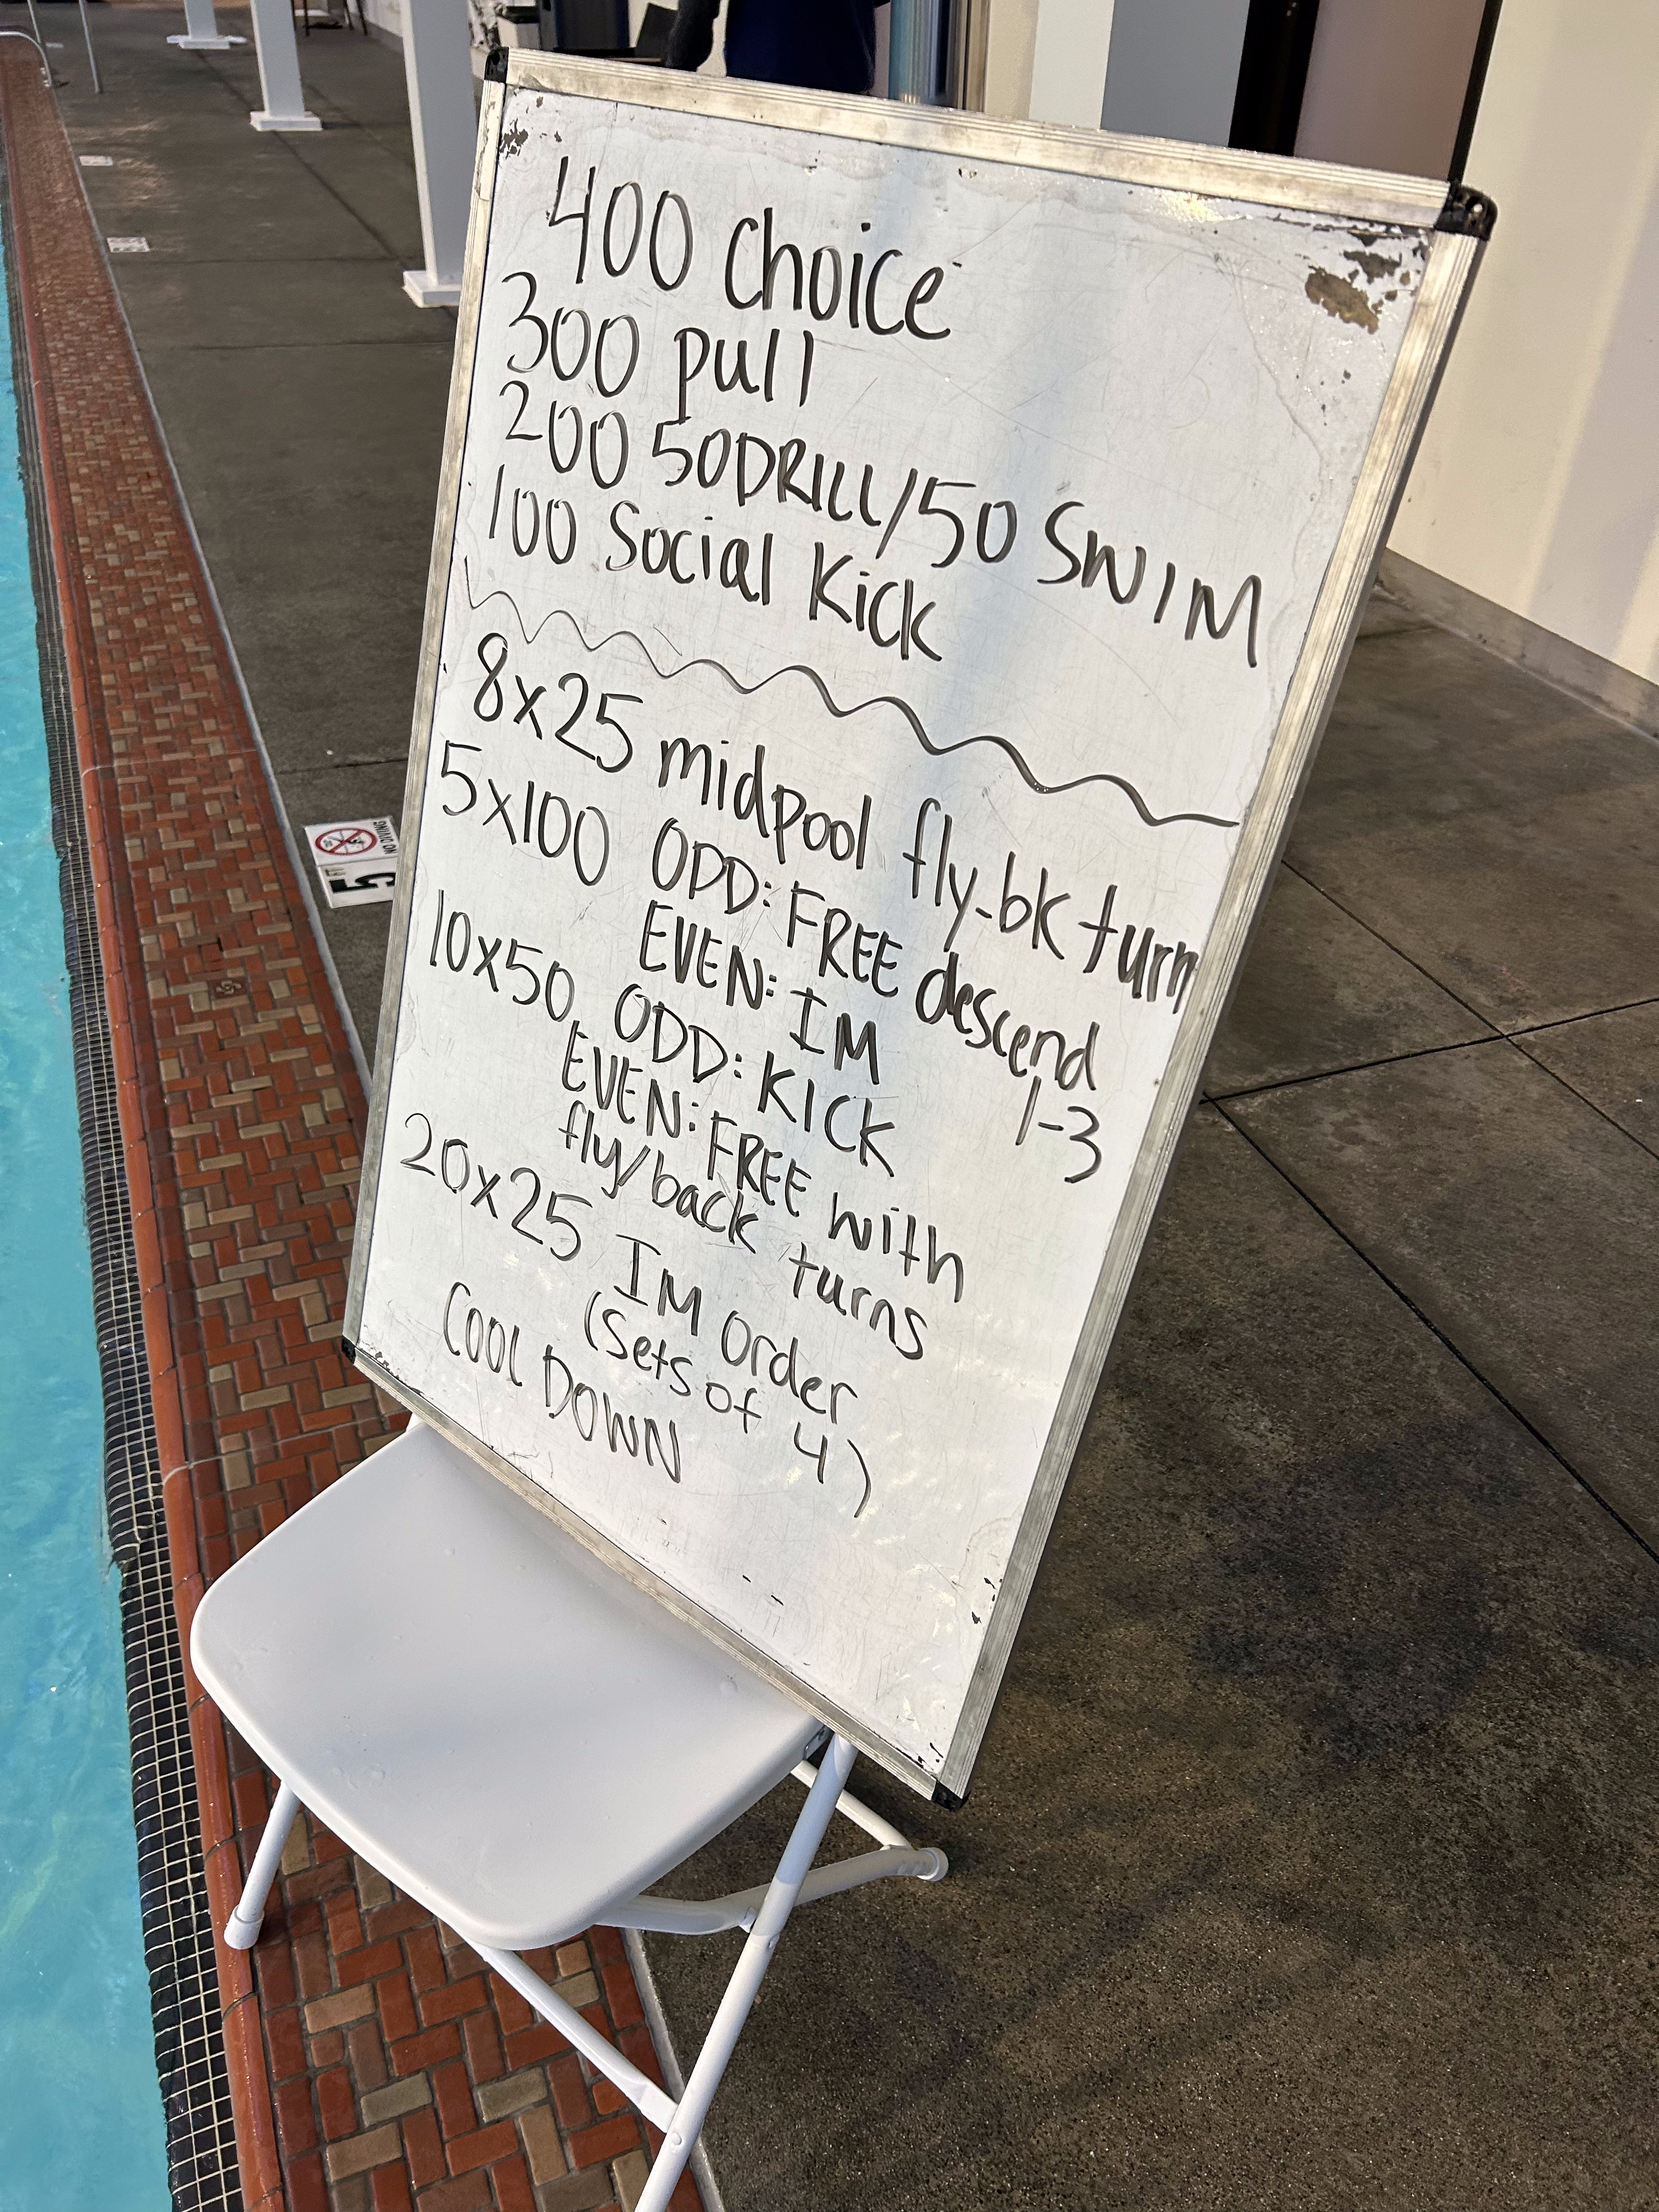 400 Choice
300 pull
200 50DRILL/50 SWIM
100 Social Kick
8x25 midpool fly-bk turn
5x100 ODD: FREE descend 1-3
EVEN: IM
10x50 ODD: KICK
EVEN: FREE with
fly/back turns
20x25 IM Order
(Sets of 4)
COOL DOWN
NO DIVING
5 FT